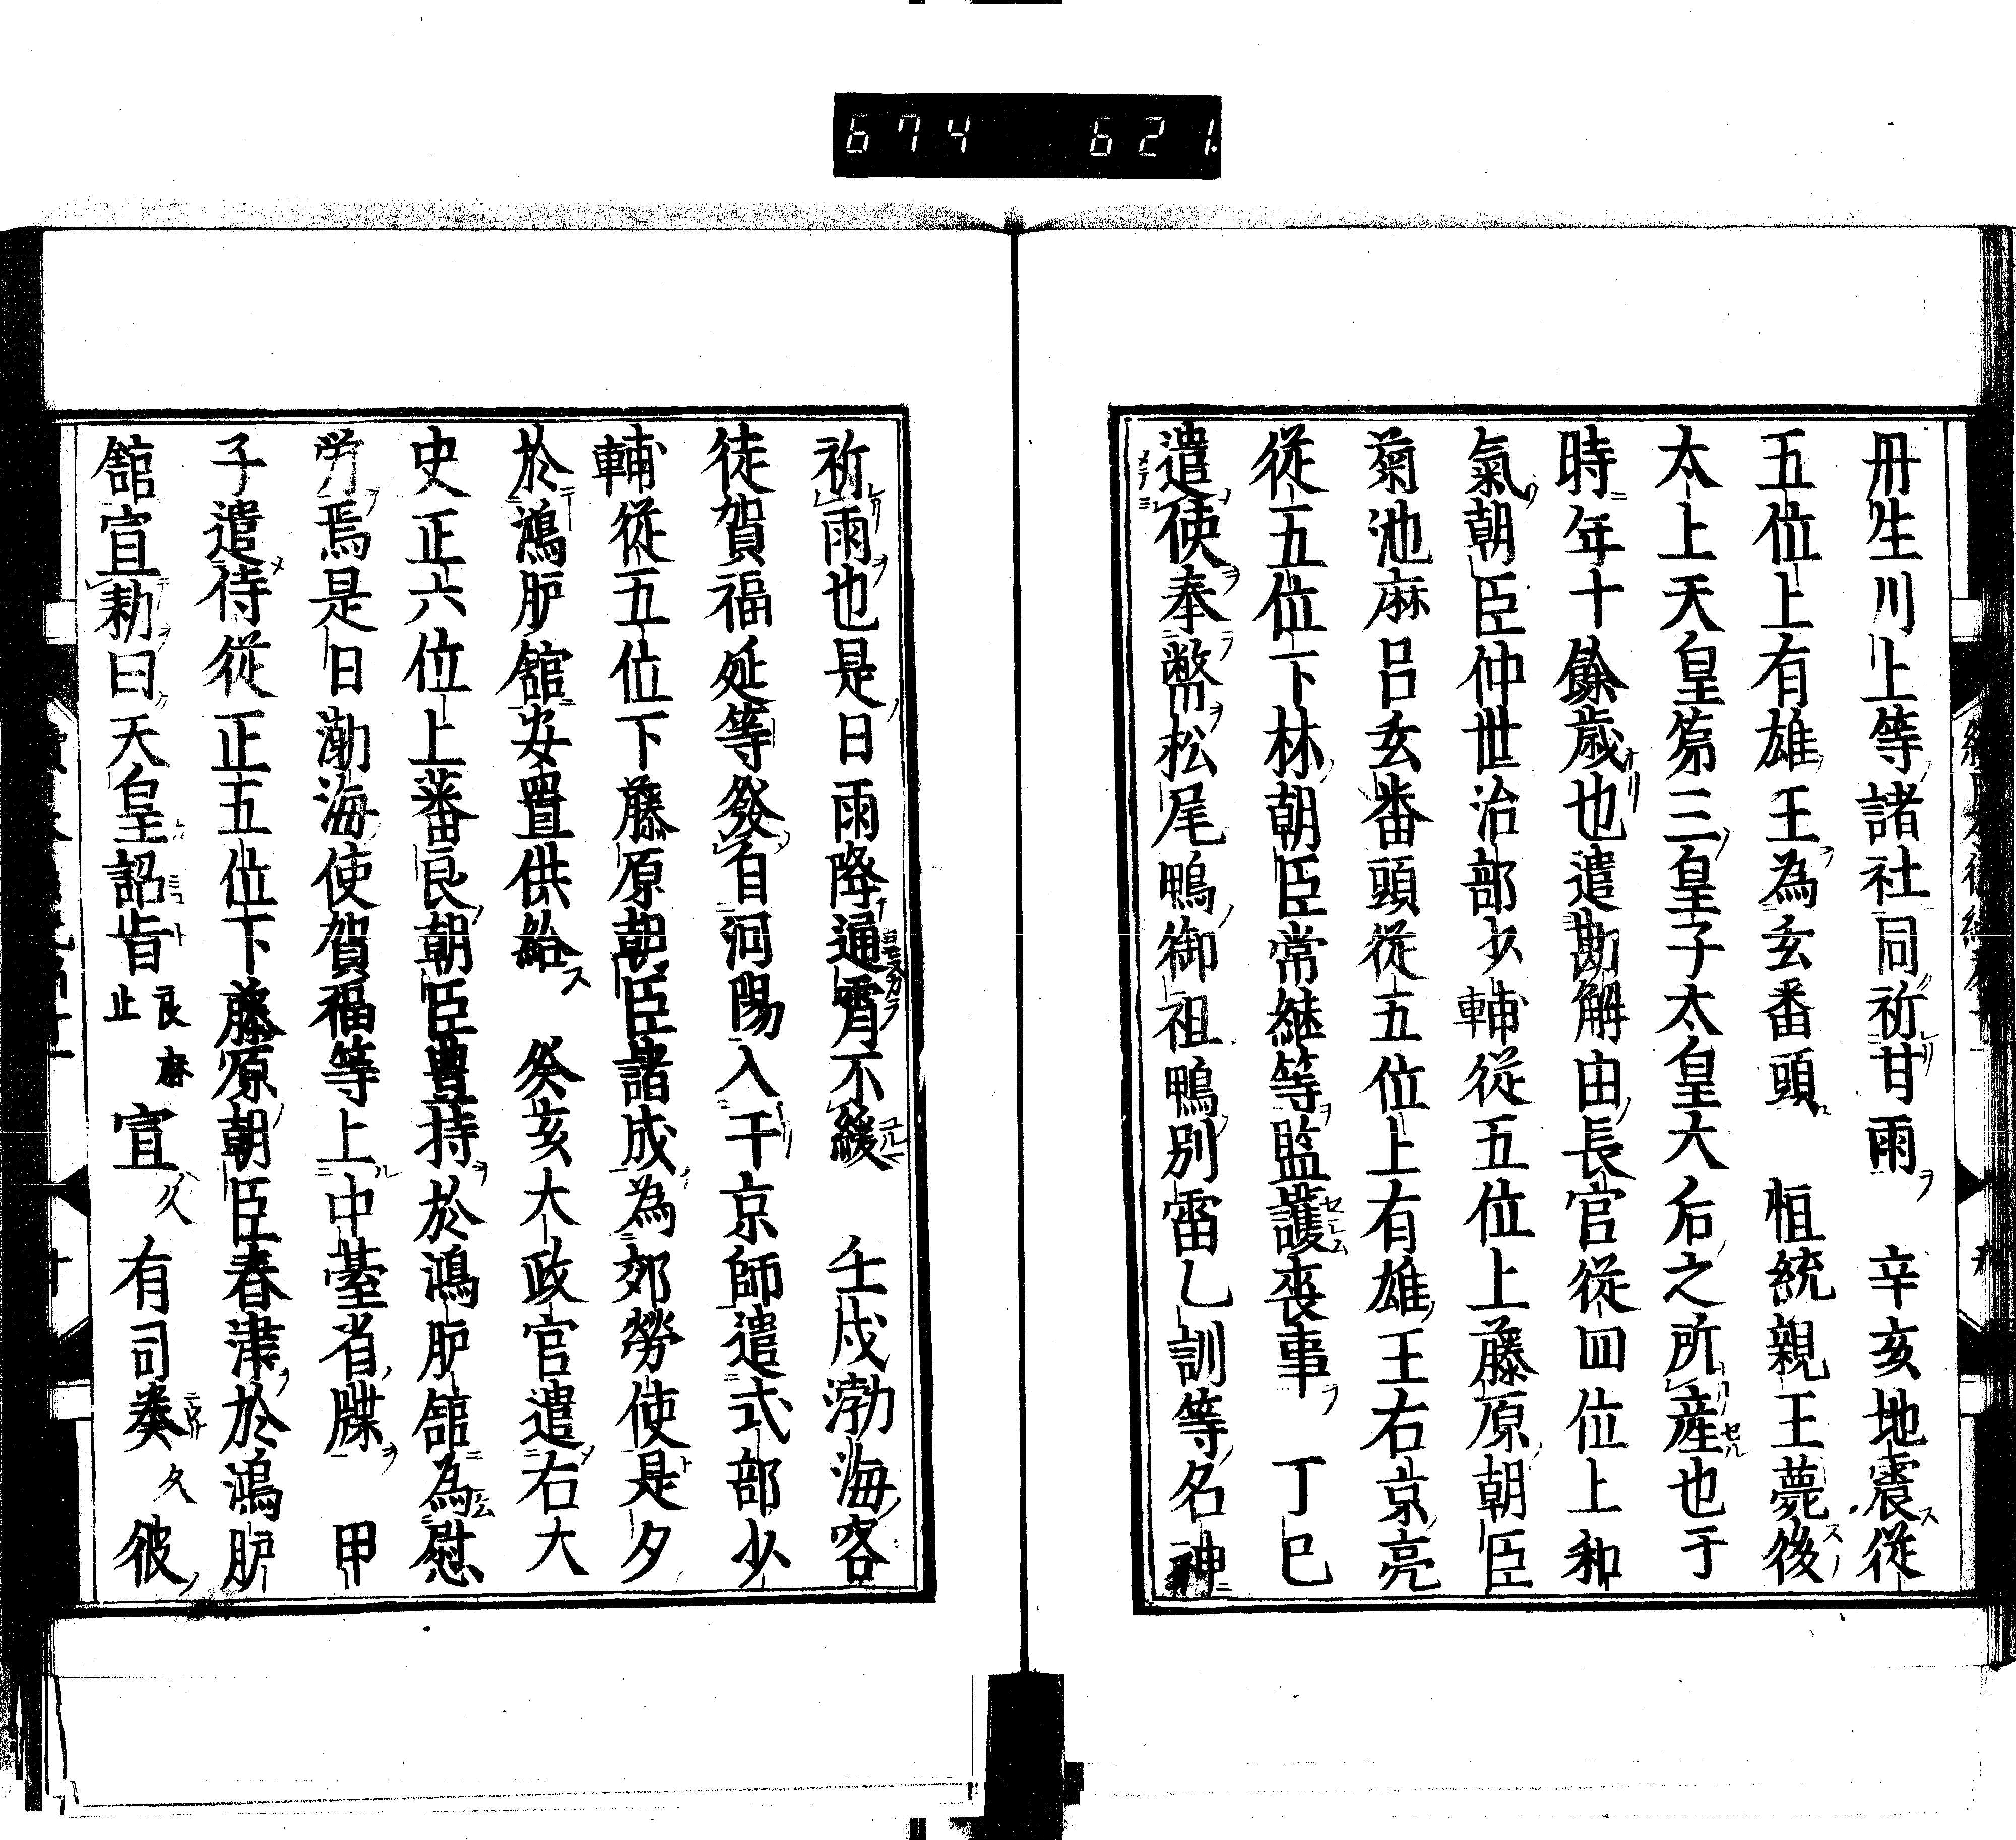 674 621.
丹生川上等諸社同祈甘雨 辛亥地震從
五位上有雄王為玄番頭 恒統親王薨後
太上天皇第三皇子太皇大后之所產也于
時年十餘歲也遣勘解由長官從四位上和
氣朝臣仲世治部少輔從五位上藤原朝臣
菊池麻呂玄番頭從五位上有雄王右京亮
從五位下林朝臣常継等監護喪事 丁巳
遣使奉幣松尾鴨御祖鴨別雷乙訓等名神
祈雨也是日雨降遍霄不緩 壬戌渤海客
徒賀福延等發自河陽入于京師遣式部少
輔從五位下藤原朝臣諸成為郊勞使是夕
於鴻臚舘安置供給 癸亥大政官遣右大
史正六位上蕃良朝臣豊持於鴻臚舘為慰
労焉是日渤海使賀福等上中臺省牒 甲
子遣侍從正五位下藤原朝臣春津於鴻臚
舘宣勅曰天皇詔旨良麻止宣久有司奏久彼